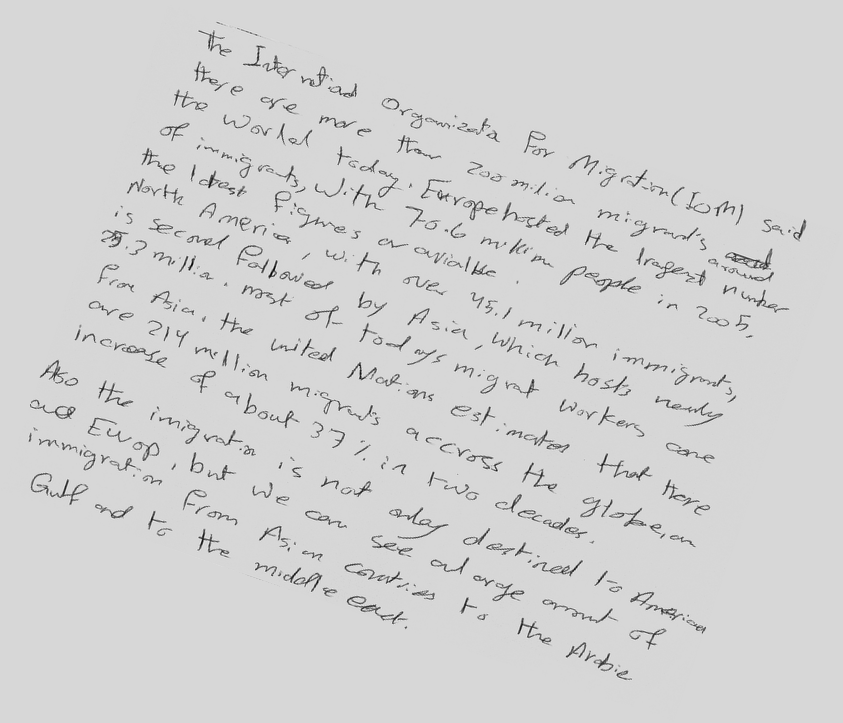 The Internatinal Organizata For Migration (IOM) said
there are more than 200 milion migrants around
the World today. Europe hosted the lragest number
of immigrants, with 70.6 million people in 2005,
the latest figures ar avialble.
North America, with over 45.1 million immigrants,
is second followed by Asia, which hosts nearly
25.3 million. most of todays migrat workers come
from Asia. the united Nations estimates that there
are 214 million migrants accross the globe, an
increase of about 37% in two decades.
Also the imigration is not only destined to America
and Europ, but we can see a large amount of
immigration from Asian countries to the Arabic
Gulf and to the middle east.